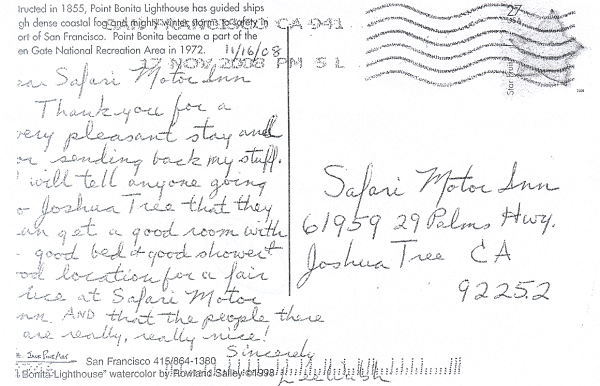 tructed in 1855, Point Bonita Lighthouse has guided ships
gh dense coastal fog and mighty winter storms to safety in
ort of San Francisco. Point Bonita became a part of the
en Gate National Recreation Area in 1972.
11/16/08
CA 941
17 NOV 2008 PM 5 L
27
USA
Star Fruit
ear Safari Motor Inn
Thank you for a
very pleasant stay and
or sending back my stuff.
I will tell anyone going
o Joshua Tree that they
an get a good room with
good bed & good shower &
ood location for a fair
rice at Safari Motor
nn AND that the people there
are really, really nice!
Sincerely
Safari Motor Inn
61959 29 Palms Hwy.
Joshua Tree CA
92252
San Francisco 415/864-1380
t Bonita Lighthouse" watercolor by Rowland Salley ©1998